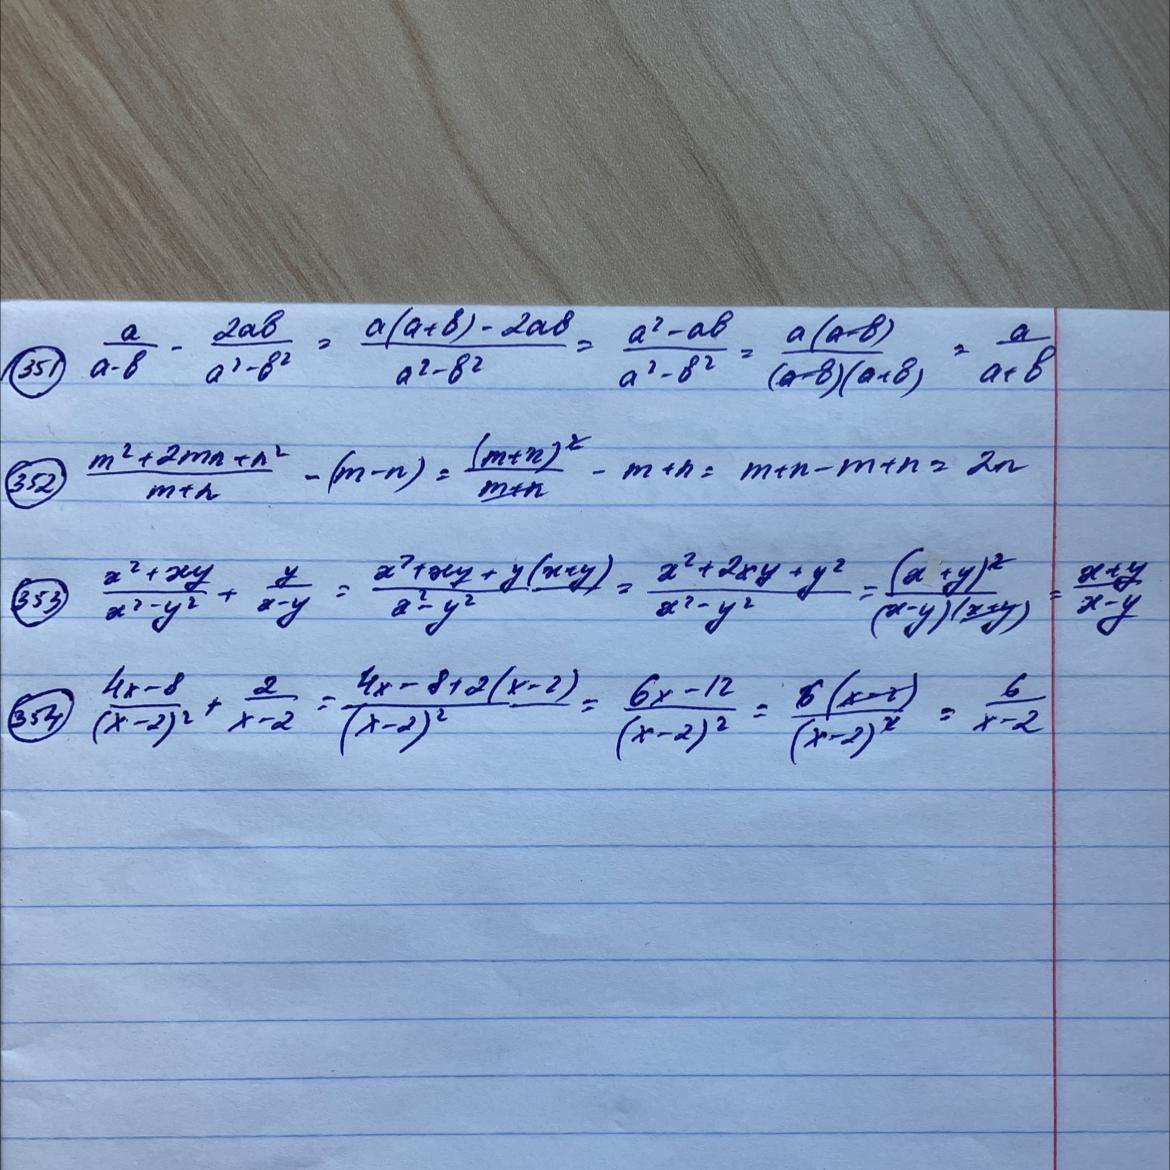 351 a/(a-b) - 2ab/(a²-b²) = (a(a+b)-2ab)/(a²-b²) = (a²-ab)/(a²-b²) = a(a-b)/((a-b)(a+b)) = a/(a+b)
352 (m²+2mn+n²)/(m+n) - (m-n) = (m+n)²/(m+n) - m+n = m+n-m+n = 2n
353 (x²+xy)/(x²-y²) + y/(x-y) = (x²+xy+y(x+y))/(x²-y²) = (x²+2xy+y²)/(x²-y²) = (x+y)²/((x-y)(x+y)) = (x+y)/(x-y)
354 (4x-8)/(x-2)² + 2/(x-2) = (4x-8+2(x-2))/(x-2)² = (6x-12)/(x-2)² = 6(x-2)/(x-2)² = 6/(x-2)